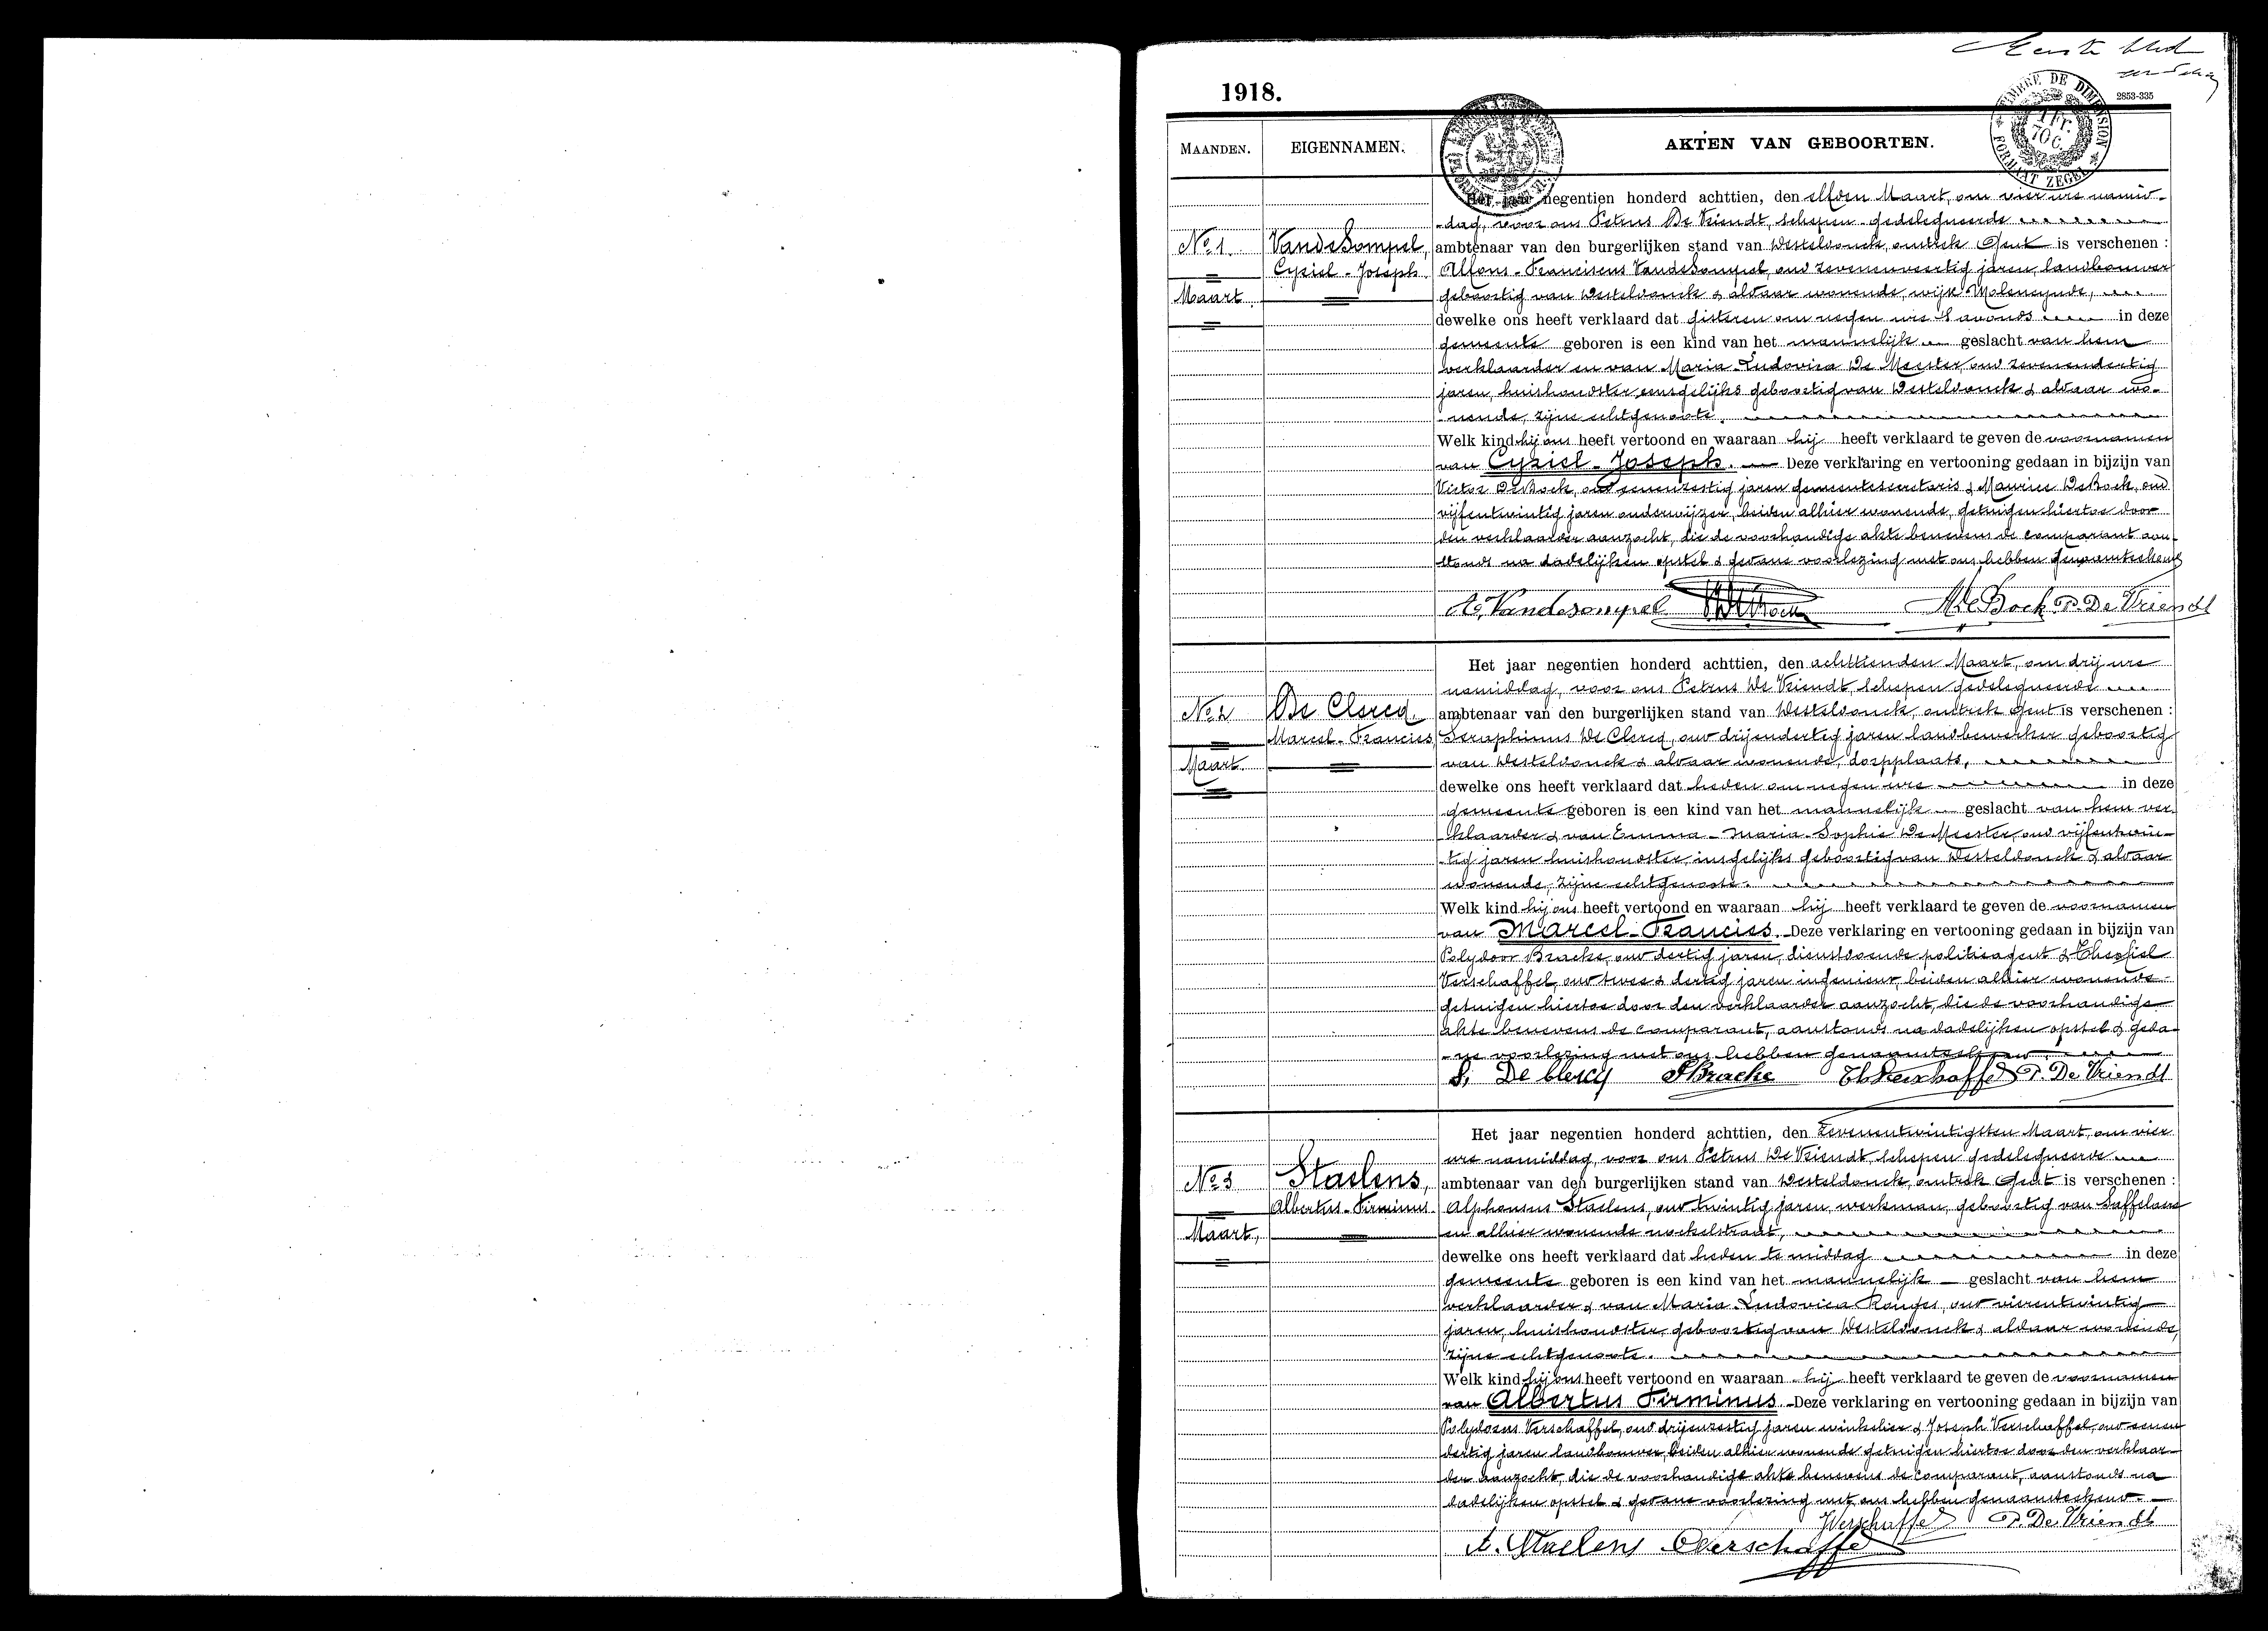 Eerste blad
1918.
2853-335
TIMBRE DE DIMENSION
1 FR. 70 C.
FORMAAT ZEGEL
MAANDEN. EIGENNAMEN. AKTEN VAN GEBOORTEN.
Het jaar negentien honderd achttien, den elfden Maart, om vier ure namid-
-dag, voor ons Petrus De Vriendt, schepen gedelegueerde
No 1. VandeSompel, ambtenaar van den burgerlijken stand van Desteldonck, omtrek Gent is verschenen :
Cyriel-Joseph Alfons-Franciscus VandeSompel, oud zevenenveertig jaren, landbouwer
Maart geboortig van Desteldonck & aldaar wonende, wijk Moleneynde,
dewelke ons heeft verklaard dat gisteren om negen ure 's avonds in deze
gemeente geboren is een kind van het mannelijk geslacht van hem
verklaarder en van Maria-Ludovica De Meester, oud zevenendertig
jaren, huishoudster, eensgelijks geboortig van Desteldonck & aldaar wo-
-nende, zijne echtgenoote.
Welk kind hij ons heeft vertoond en waaraan hij heeft verklaard te geven de voornamen
van Cyriel-Joseph. Deze verklaring en vertooning gedaan in bijzijn van
Victor DeBock, oud eenenzestig jaren gemeentesecretaris & Maurice DeBock, oud
vijfentwintig jaren onderwijzer, beiden alhier wonende, getuigen hiertoe door
den verklaarder aanzocht, die de voorhandige akte benevens de comparant aan-
stonds na dadelijken opstel & gedane voorlezing met ons hebben genaamteekend
A. Vandesompel VDeBock MDeBock P. De Vriendt
Het jaar negentien honderd achttien, den achttienden Maart, om drij ure
namiddag, voor ons Petrus De Vriendt, schepen gedelegueerde
No 2 De Clercq. ambtenaar van den burgerlijken stand van Desteldonck, omtrek Gent is verschenen :
Marcel-Francies Seraphinus De Clercq, oud drijendertig jaren landbewerker geboortig
Maart. van Desteldonck & aldaar wonende, dorpplaats,
dewelke ons heeft verklaard dat heden om negen ure in deze
gemeente geboren is een kind van het mannelijk geslacht van hem ver-
klaarder & van Emma-Maria-Sophie De Meester, oud vijfentwin-
-tig jaren huishoudster, insgelijks geboortig van Desteldonck & aldaar
wonende, zijne echtgenoote.
Welk kind hij ons heeft vertoond en waaraan hij heeft verklaard te geven de voornamen
van Marcel-Francies. Deze verklaring en vertooning gedaan in bijzijn van
Polydoor Bracke, oud dertig jaren, dienstdoende politieagent & Theofiel
Verschaffel, oud twee & dertig jaren ingenieur, beiden alhier wonende
getuigen hiertoe door den verklaarder aanzocht, die de voorhandige
akte benevens de comparant, aanstonds na dadelijken opstel & geda-
-ne voorlezing met ons hebben genaamteekend.
S. De Clercq PBracke Th Verschaffel P. De Vriendt
Het jaar negentien honderd achttien, den zevenentwintigsten Maart, om vier
ure namiddag, voor ons Petrus De Vriendt, schepen gedelegueerde
No 3 Staelens, ambtenaar van den burgerlijken stand van Desteldonck, omtrek Gent is verschenen :
Albertus-Firminus Alphonsus Staelens, oud twintig jaren, werkman, geboortig van Saffelaere
Maart, en alhier wonende nockelstraat,
dewelke ons heeft verklaard dat heden te middag in deze
gemeente geboren is een kind van het mannelijk geslacht van hem
verklaarder & van Maria Ludovica, oud vierentwintig
jaren, huishoudster, geboortig van Desteldonck & aldaar wonende,
zijne echtgenoote.
Welk kind hij ons heeft vertoond en waaraan hij heeft verklaard te geven de voornamen
van Albertus Firminus. Deze verklaring en vertooning gedaan in bijzijn van
Polydorus Verschaffel, oud drijenzestig jaren winkelier & Joseph Verschaffel, oud eenen
dertig jaren landbouwer, beiden alhier wonende getuigen hiertoe door den verklaar-
der aanzocht, die de voorhandige akte benevens de comparant, aanstonds na
dadelijken opstel & gedane voorlezing met ons hebben genaamteekend.
JVerschaffel P. De Vriendt
A. Staelens Verschaffel